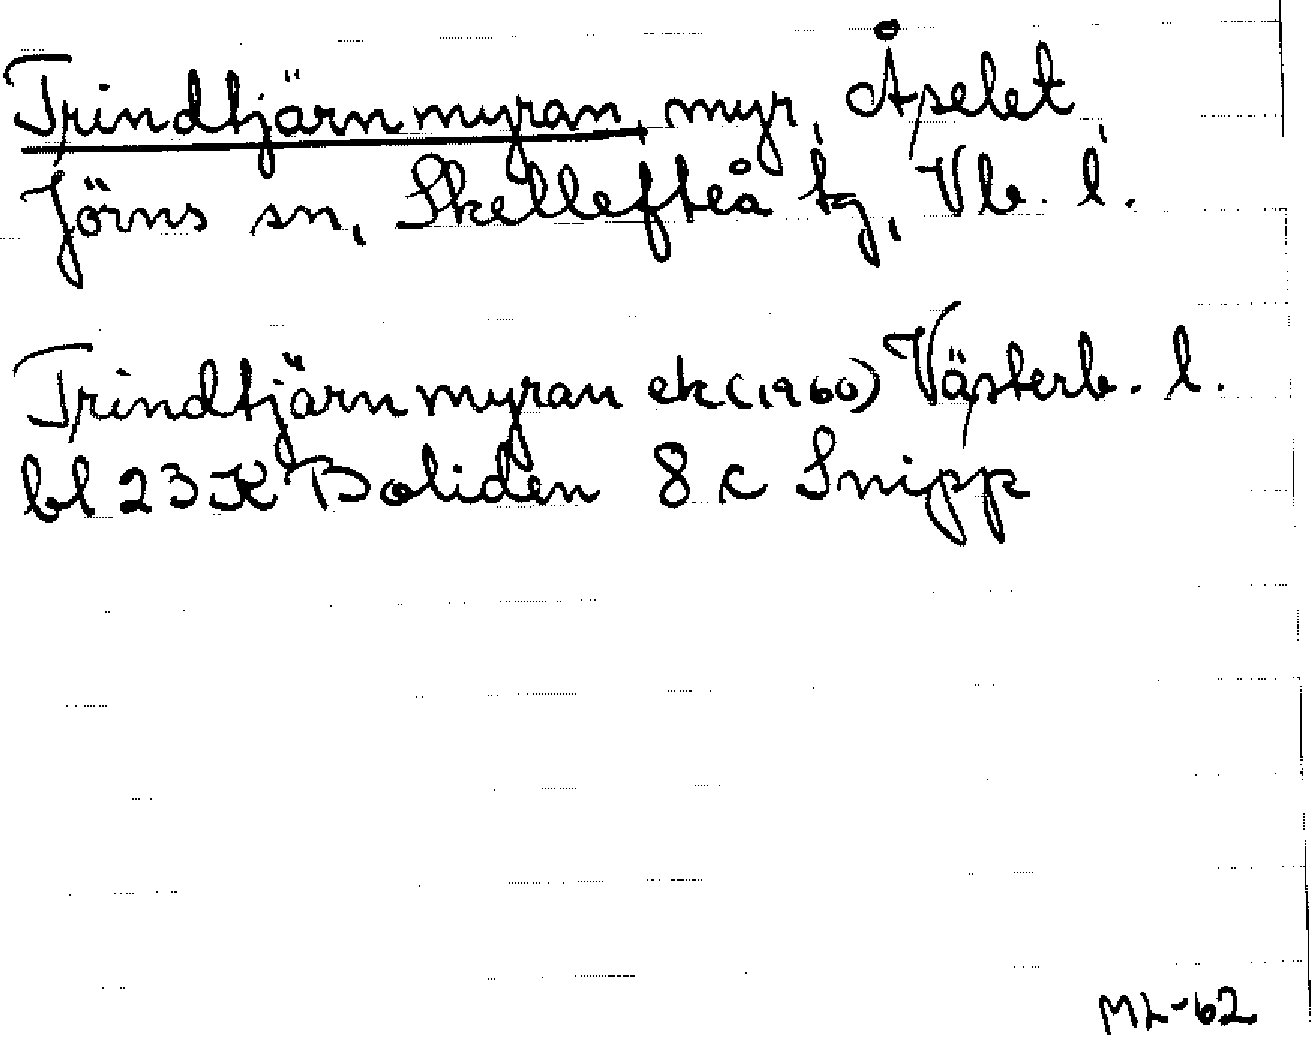 Trindtjärnmyran, myr, Åselet,
Jörns sn, Skellefteå tg, Vb. l.
Trindtjärnmyran ek (1960) Västerb. l.
bl 23 K Boliden 8 c Snipp
ML-62